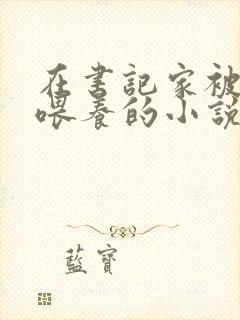 在書記家被
喂養的小說
藍寶